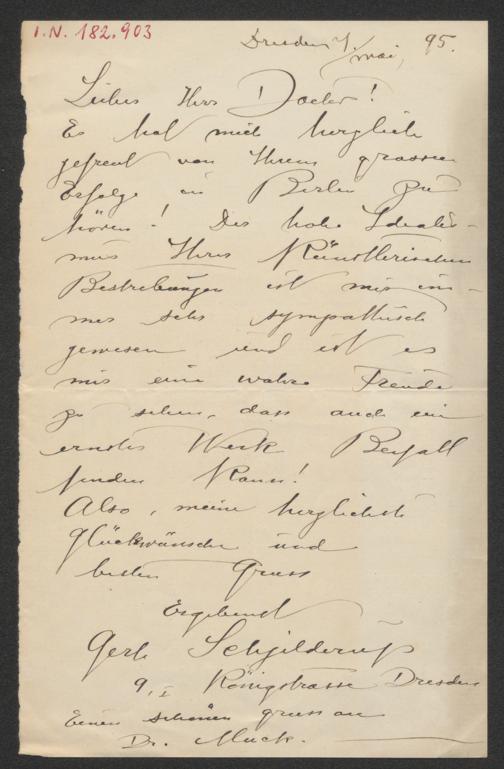 I.N. 182.903
Dresden 7/ mai, 95.
Lieber Herr Doctor!
Es hat mich herzlich
gefreut von Ihrem grossen
Erfolge in Berlin zu
hören! Der hohe Idealis-
mus Ihrer Künstlerischen
Bestrebungen ist mir im-
mer sehr sympathisch
gewesen und ist es
mir eine wahre Freude
zu sehen, dass auch ein
ernstes Werk Beifall
finden kann!
Also, meine herzlichste
Glückwünsche und
besten Gruss
Ergebenst
Gerh Schjelderup
9, I Königstrasse Dresden
Einen schönen gruss an
Dr. Muck.